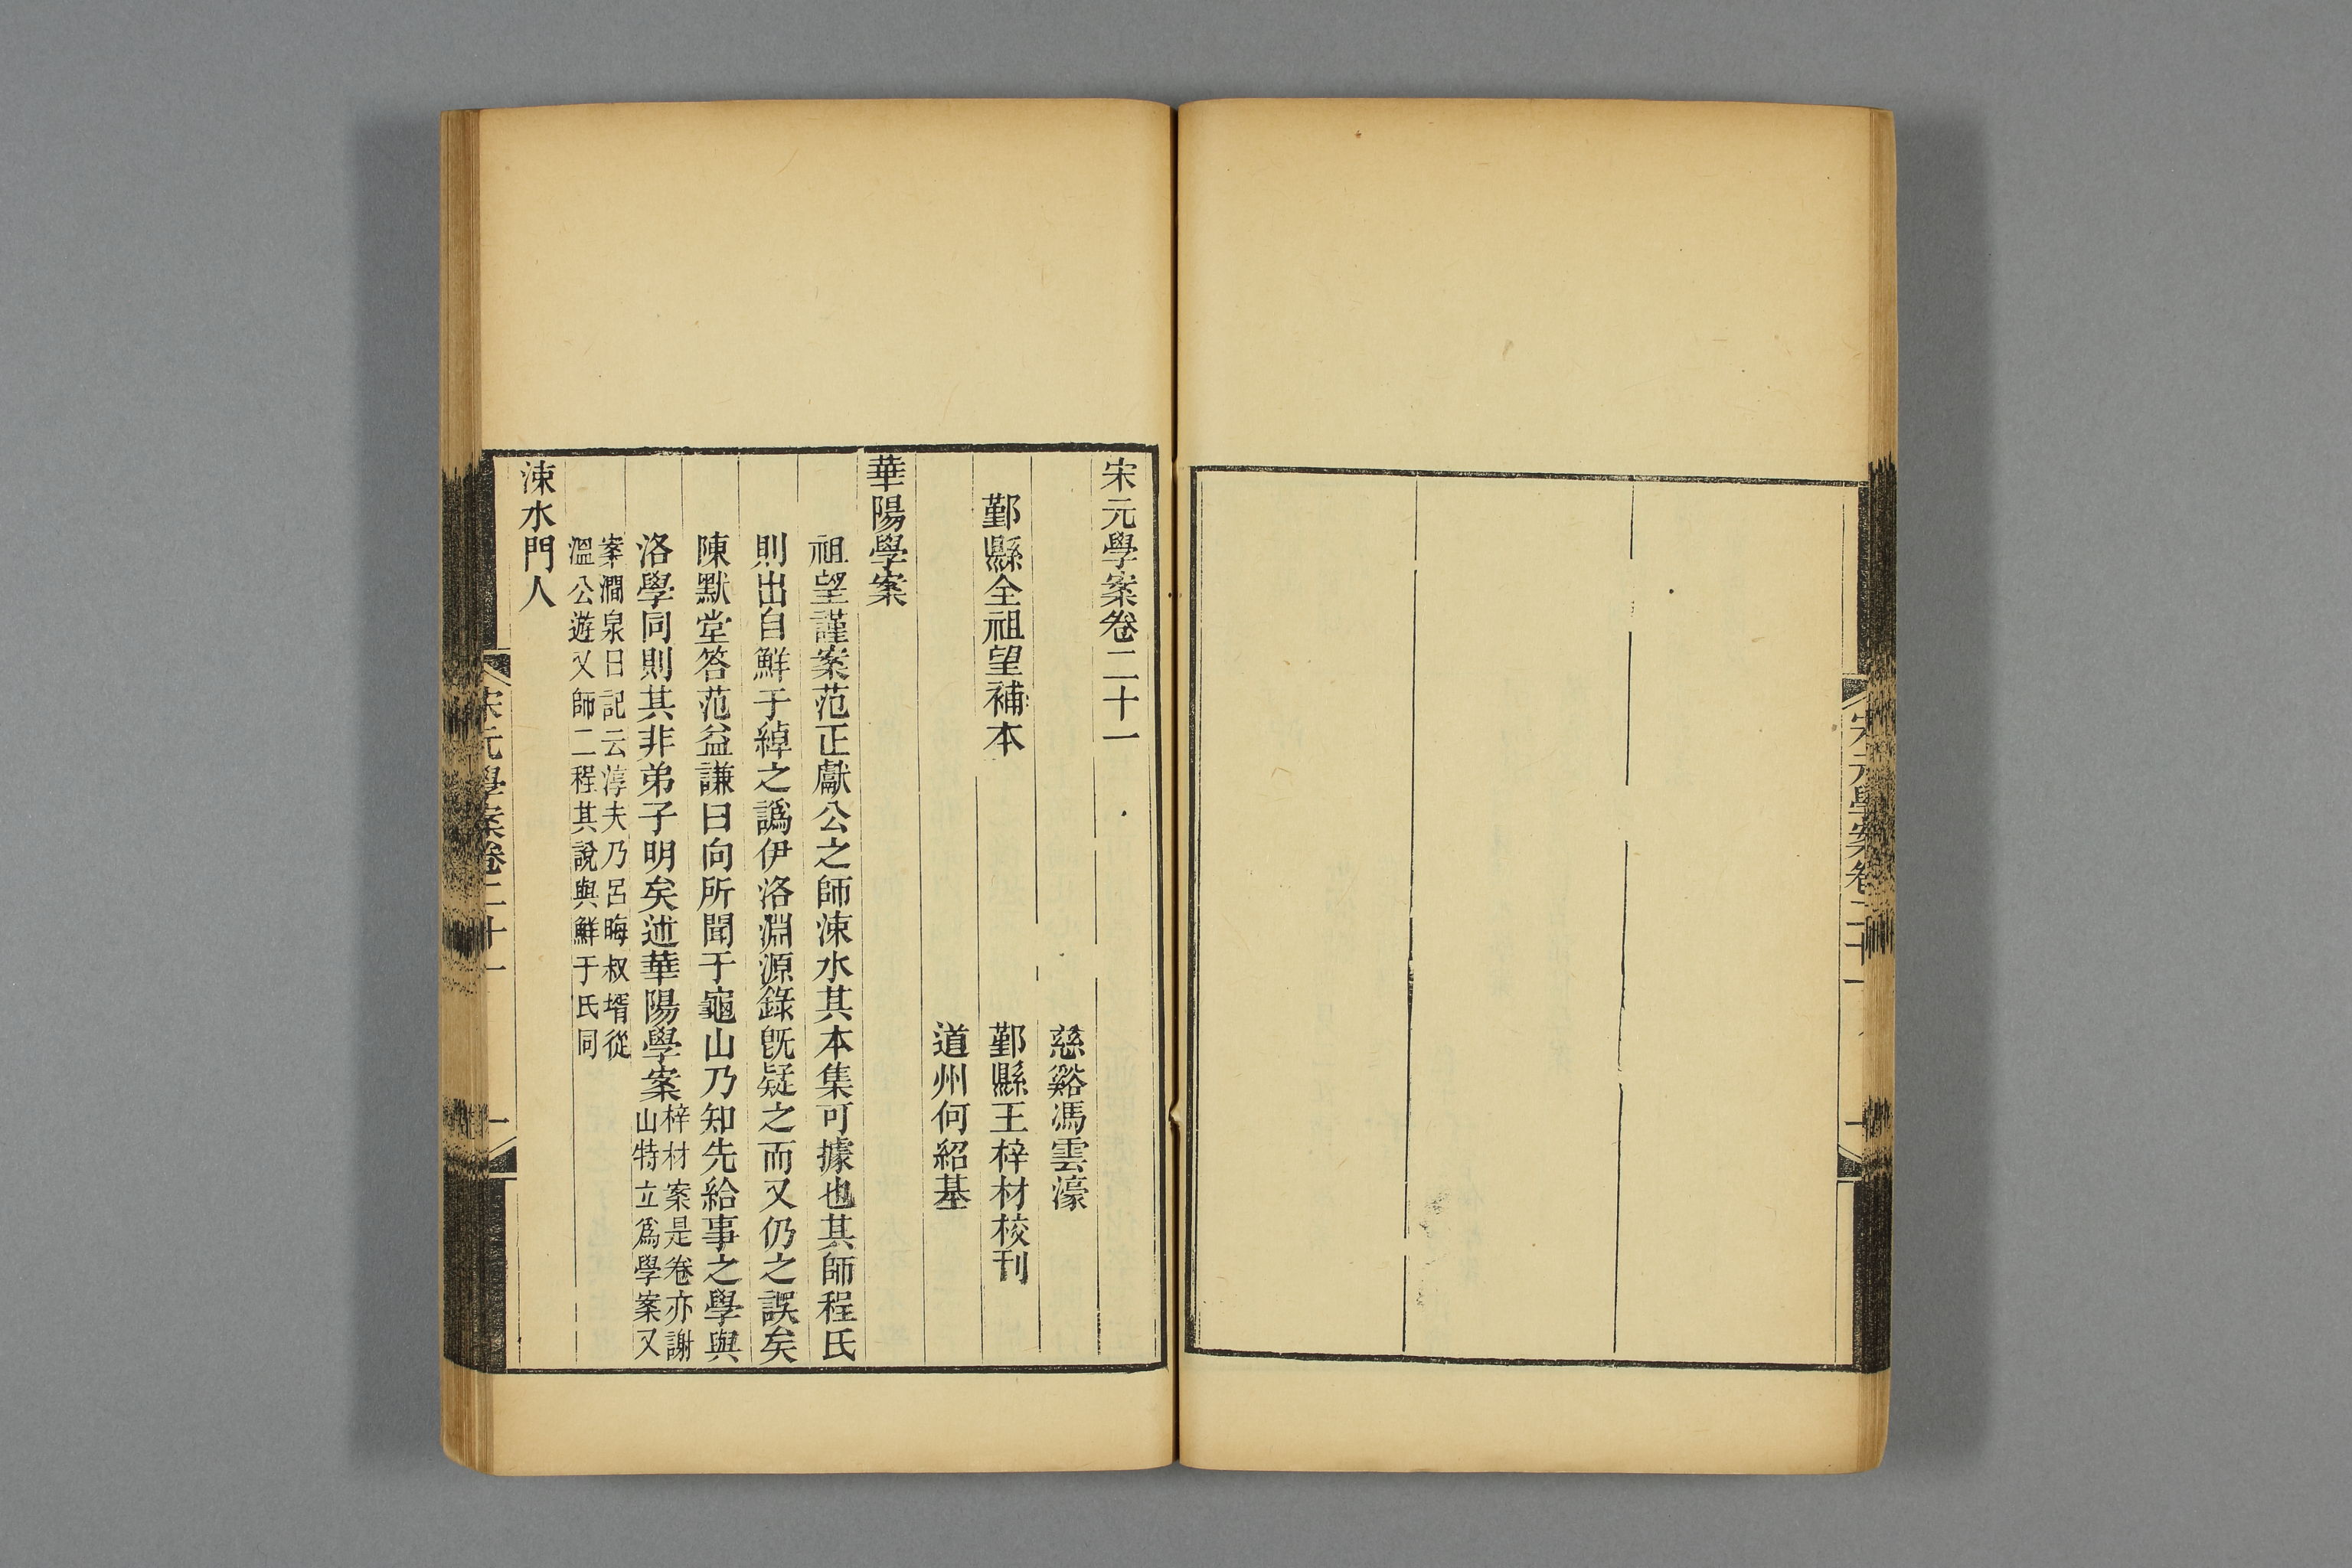 宋元學案卷二十一
慈谿馮雲濠
鄞縣全祖望補本
鄞縣王梓材校刊
道州何紹基
華陽學案
祖望謹案范正獻公之師涑水其本集可據也其師程氏
則出自鮮于綽之譌伊洛淵源錄旣疑之而又仍之誤矣
陳默堂答范益謙曰向所聞于龜山乃知先給事之學與
洛學同則其非弟子明矣述華陽學案
梓材案是卷亦謝
山特立爲學案又
案澗泉日記云淳夫乃呂晦叔壻從
溫公遊又師二程其說與鮮于氏同
涑水門人
宋元學案卷二十一
一
宋元學案卷二十一